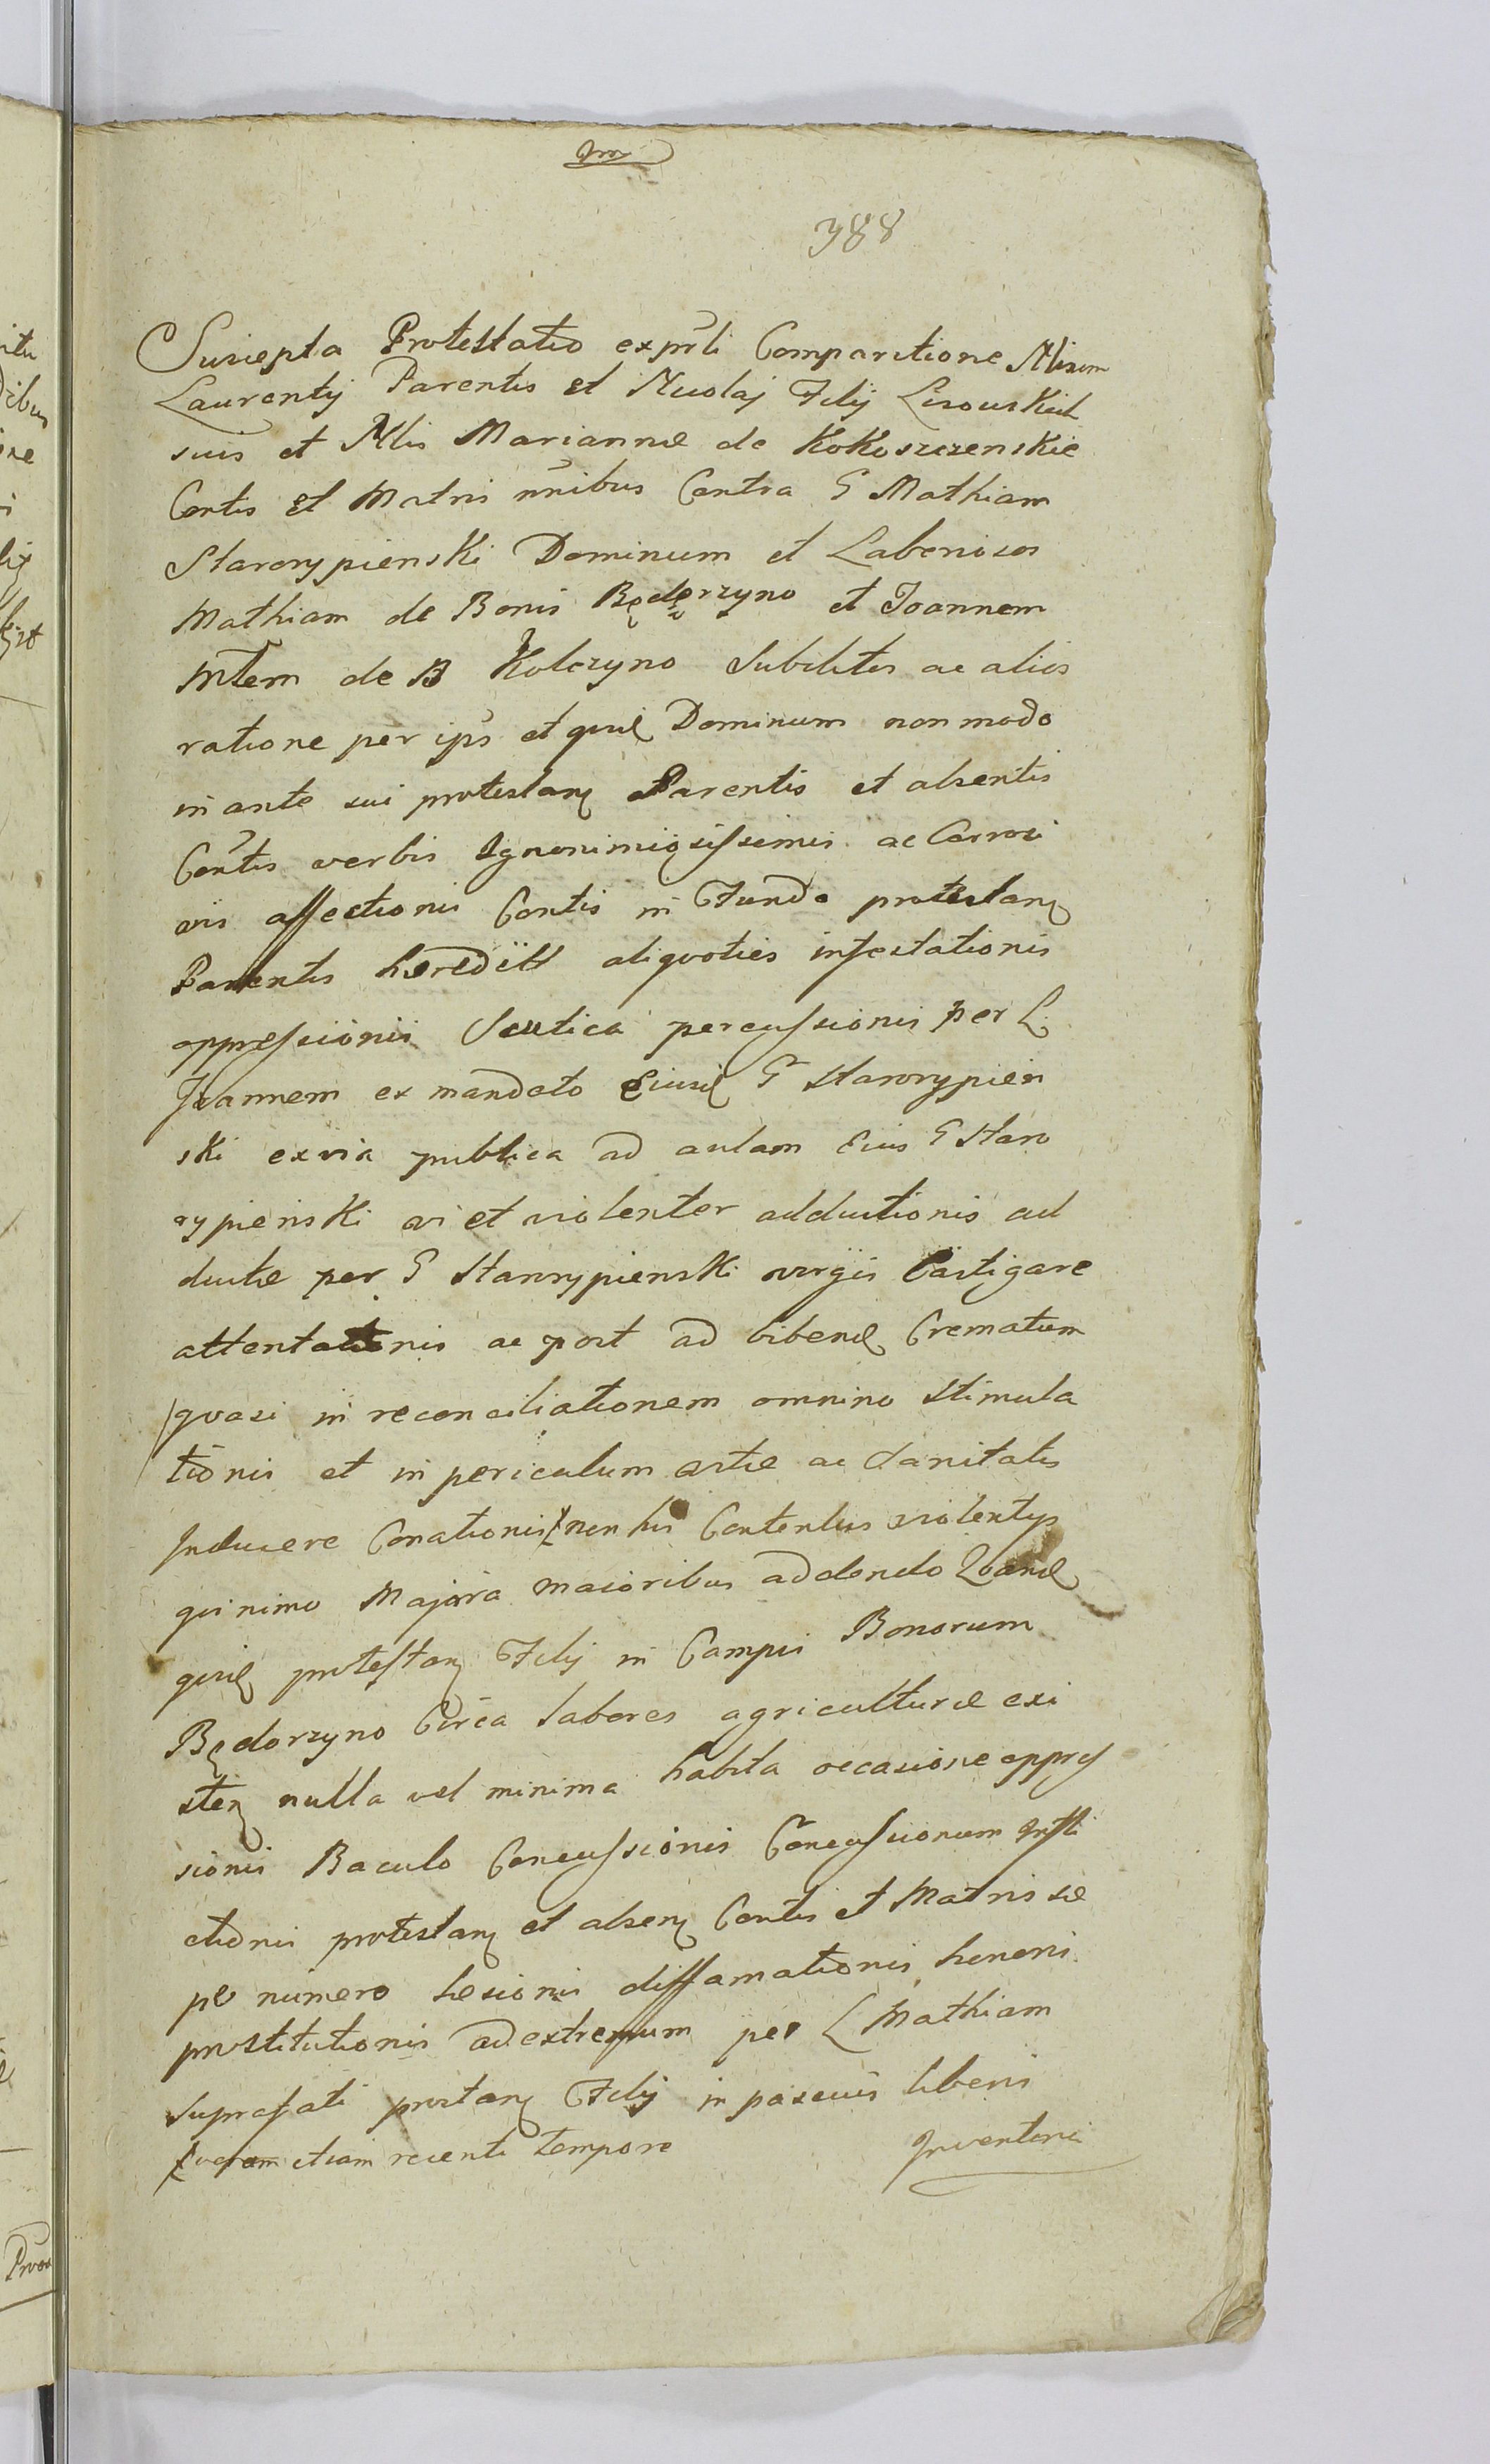 388
Suscepta Protestatio ex prsli Comparitione Nlium
Laurentij Parentis et Nicolaj Filij Lisouskich
suis et Nlis Mariannæ de Kokoszczenskie
Contis et Matris nnibus Contra G Mathiam
Starorypienski Dominum et Laboriosos
Mathiam de Bonis Będorzyno et Joannem
de B Kolczyno Subditos ac alios
ratione per ips et Dominum non modo
in ante sui protestanꝭ Parentis et absentis
Contis verbis Ignonimiosissimis ac Corrosi
vis affectionis Contis in Fundo protestanꝭ
Parentis aliquoties infestationis
oppressionis Scutica percussionis per L
Joannem ex mandato G Starorypien
ski ex via publica ad aulam Eius G Staro
rypienski vi et violenter adductionis ad
ductæ per G Starorypienski virgis Castigare
attentationis ac post ad bibend Crematum
quasi in reconciliationem omnino Stimula
tionis et in periculum ac Sanitatis
Inducere Conationis non his Contentus violentys
quinimo Majora maioribus addendo
protestanꝭ Filij in Campis Bonorum
Będorzyno Circa labores agriculturæ exi
stenꝭ nulla vel minima habita occasione oppres
sionis Baculo Concussionis Concussionum
ctionis protestanꝭ et absenꝭ Contis et Matris sæ
pe numero læsionis diffamationis honoris
prostitutionis ad extremum per L Mathiam
suprafati protanꝭ Filij in pascuis liberis
etiam recenti tempore Inventoris